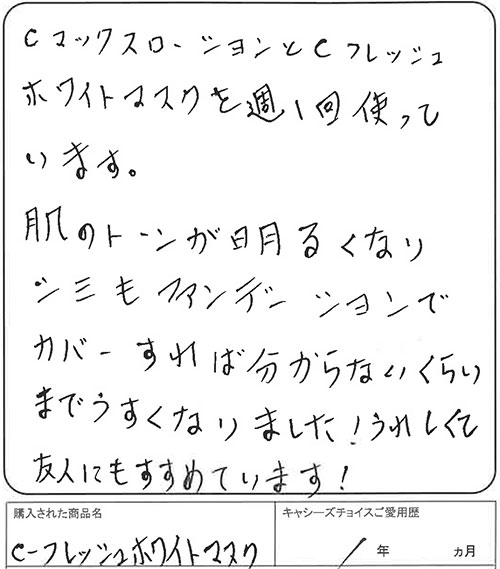 CマックスローションとCフレッシュ
ホワイトマスクを週1回使って
います。
肌のトーンが明るくなり
シミもファンデーションで
カバーすれば分からないくらい
までうすくなりました!うれしくて
友人にもすすめています!
購入された商品名
キャシーズチョイスご愛用歴
C-フレッシュホワイトマスク
1年 ヵ月